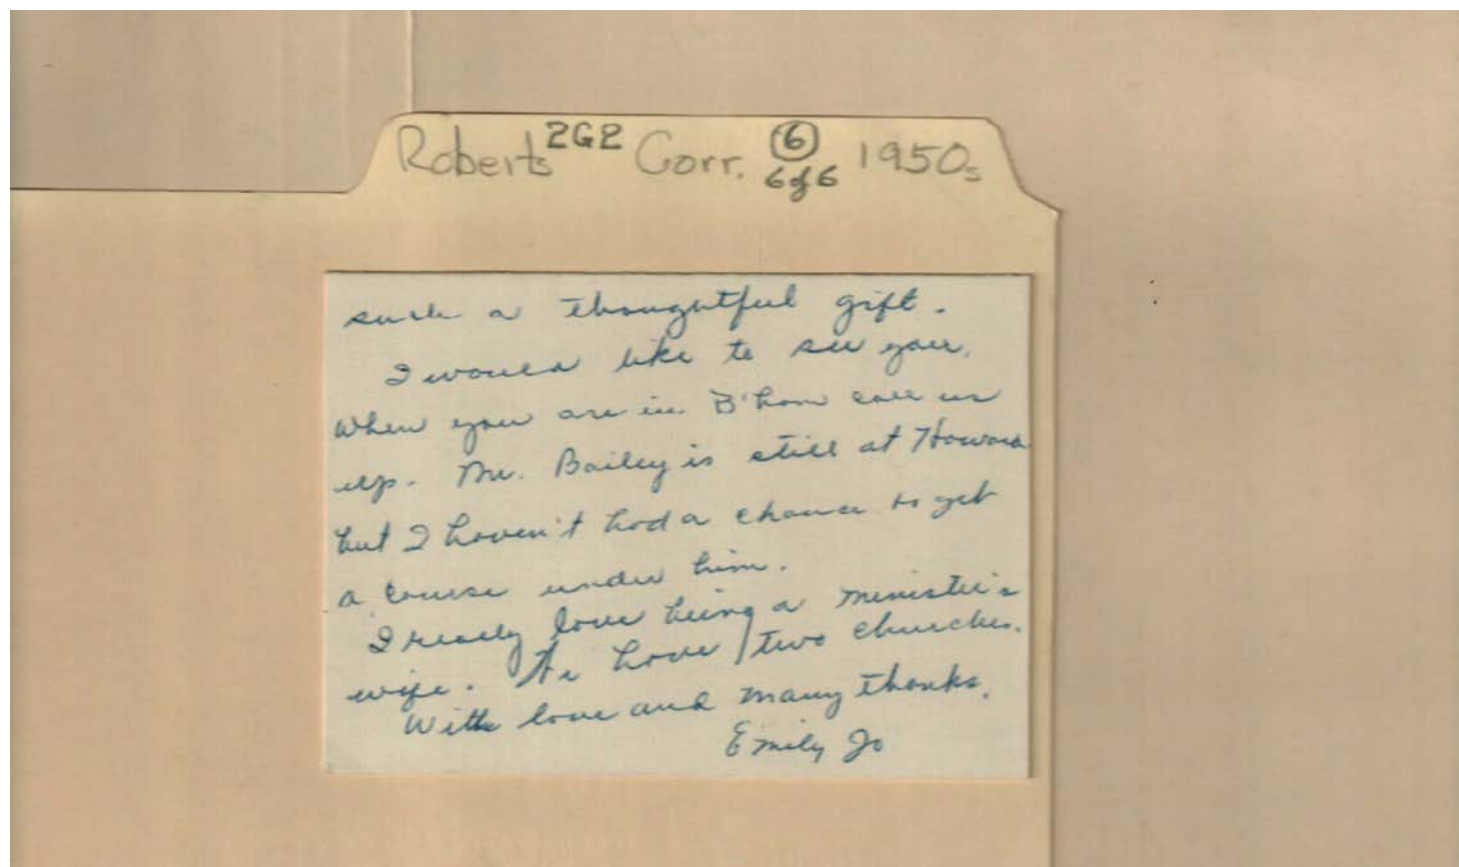 Roberts 2G2 Corr. 6 1950s
6 of 6
such a thoughtful gift.
I would like to see you.
When you are in B'ham call us
up. Mr. Bailey is still at Howard
but I haven't had a chance to get
a course under him.
I really love being a minister's
wife. We have two churches.
With love and many thanks,
Emily Jo